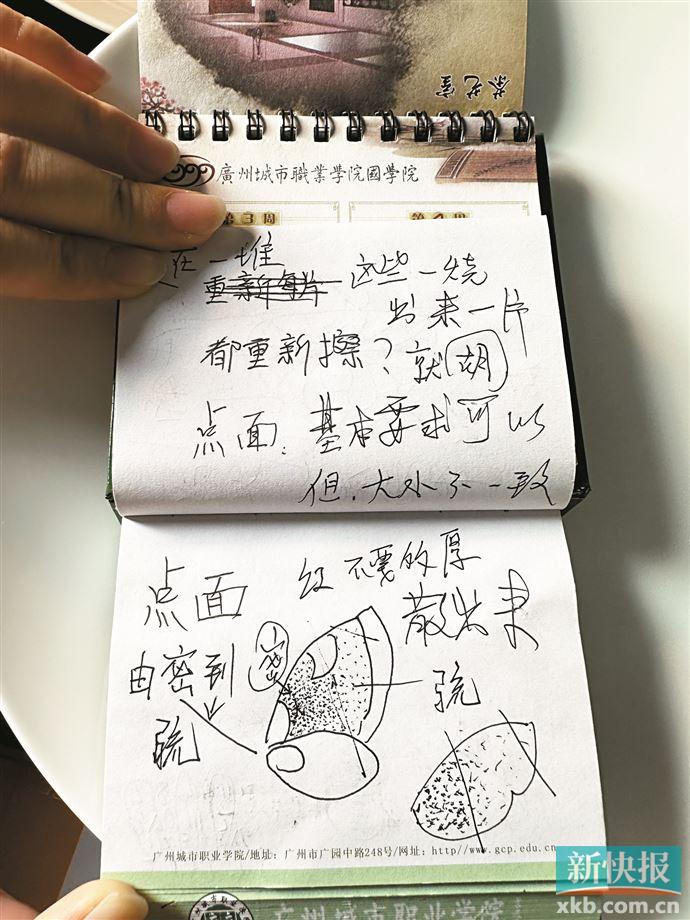 茶艺室
廣州城市職業學院國學院
第3周
在一堆
重新 这些一烧
出来一片
都重新擦？就胡
点面：基本要求可以
但．大小不一致
点面 不要的厚
由密到 密 散出来
疏 疏
广州城市职业学院/地址：广州市广园中路248号/网址：http//www.gcp.edu.cn
广州城市职业学院
新快报
xkb.com.cn